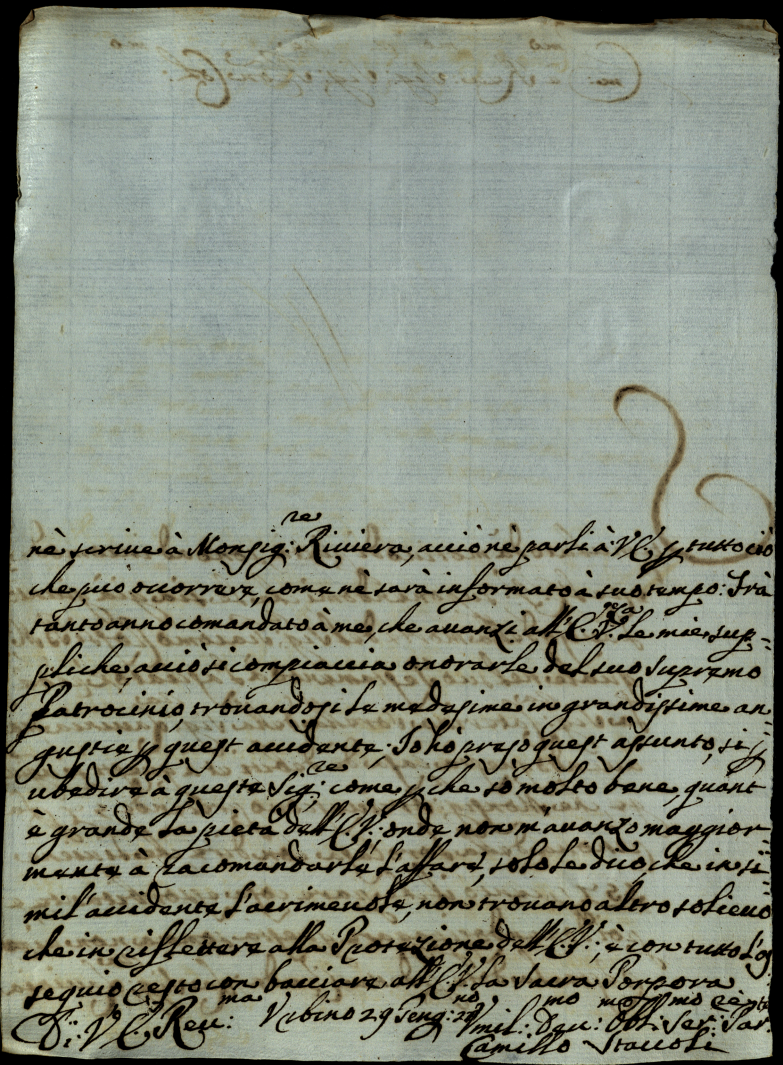 nè scrive à Monsig:re Riviera, acciò nè parli à V E p tutto ciò
che può ocorrere, come nè sarà informato à suo tempo: Frà
tanto anno comandato à me, che avanzi all'E. V. le mie sup=
pliche, acciò si compiaccia onorarle del suo supremo
Patrocinio, trovandosi le medesime in grandissime an=
gustie p quest accidente; Io hò preso quest assunto, si p
ubedire à queste Sig:re come p che sò molto bene, quant
è grande la pietà dell'E.V: onde non m'avanzo maggior=
mente à racomandarle l'affare, solo le dico, che in si=
mil'accidente lacrimevole, non trovano altro solievo
che in riflettere alla Protezione dell'E.V:, è con tutto l'os=
sequio resto con bacciare all'E.V. la Sacra Porpora
Di: V E. Rev:ma Urbino 29 Umil:mo Dev:mo Obb:mo Ser:
Camillo Staccoli